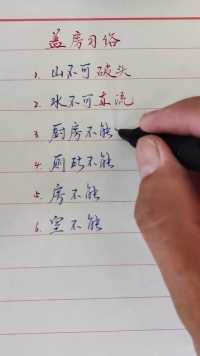 盖房习俗
1. 山不可破头
2. 水不可东流
3. 厨房不能
4. 厕所不能
5. 房不能
6. 室不能